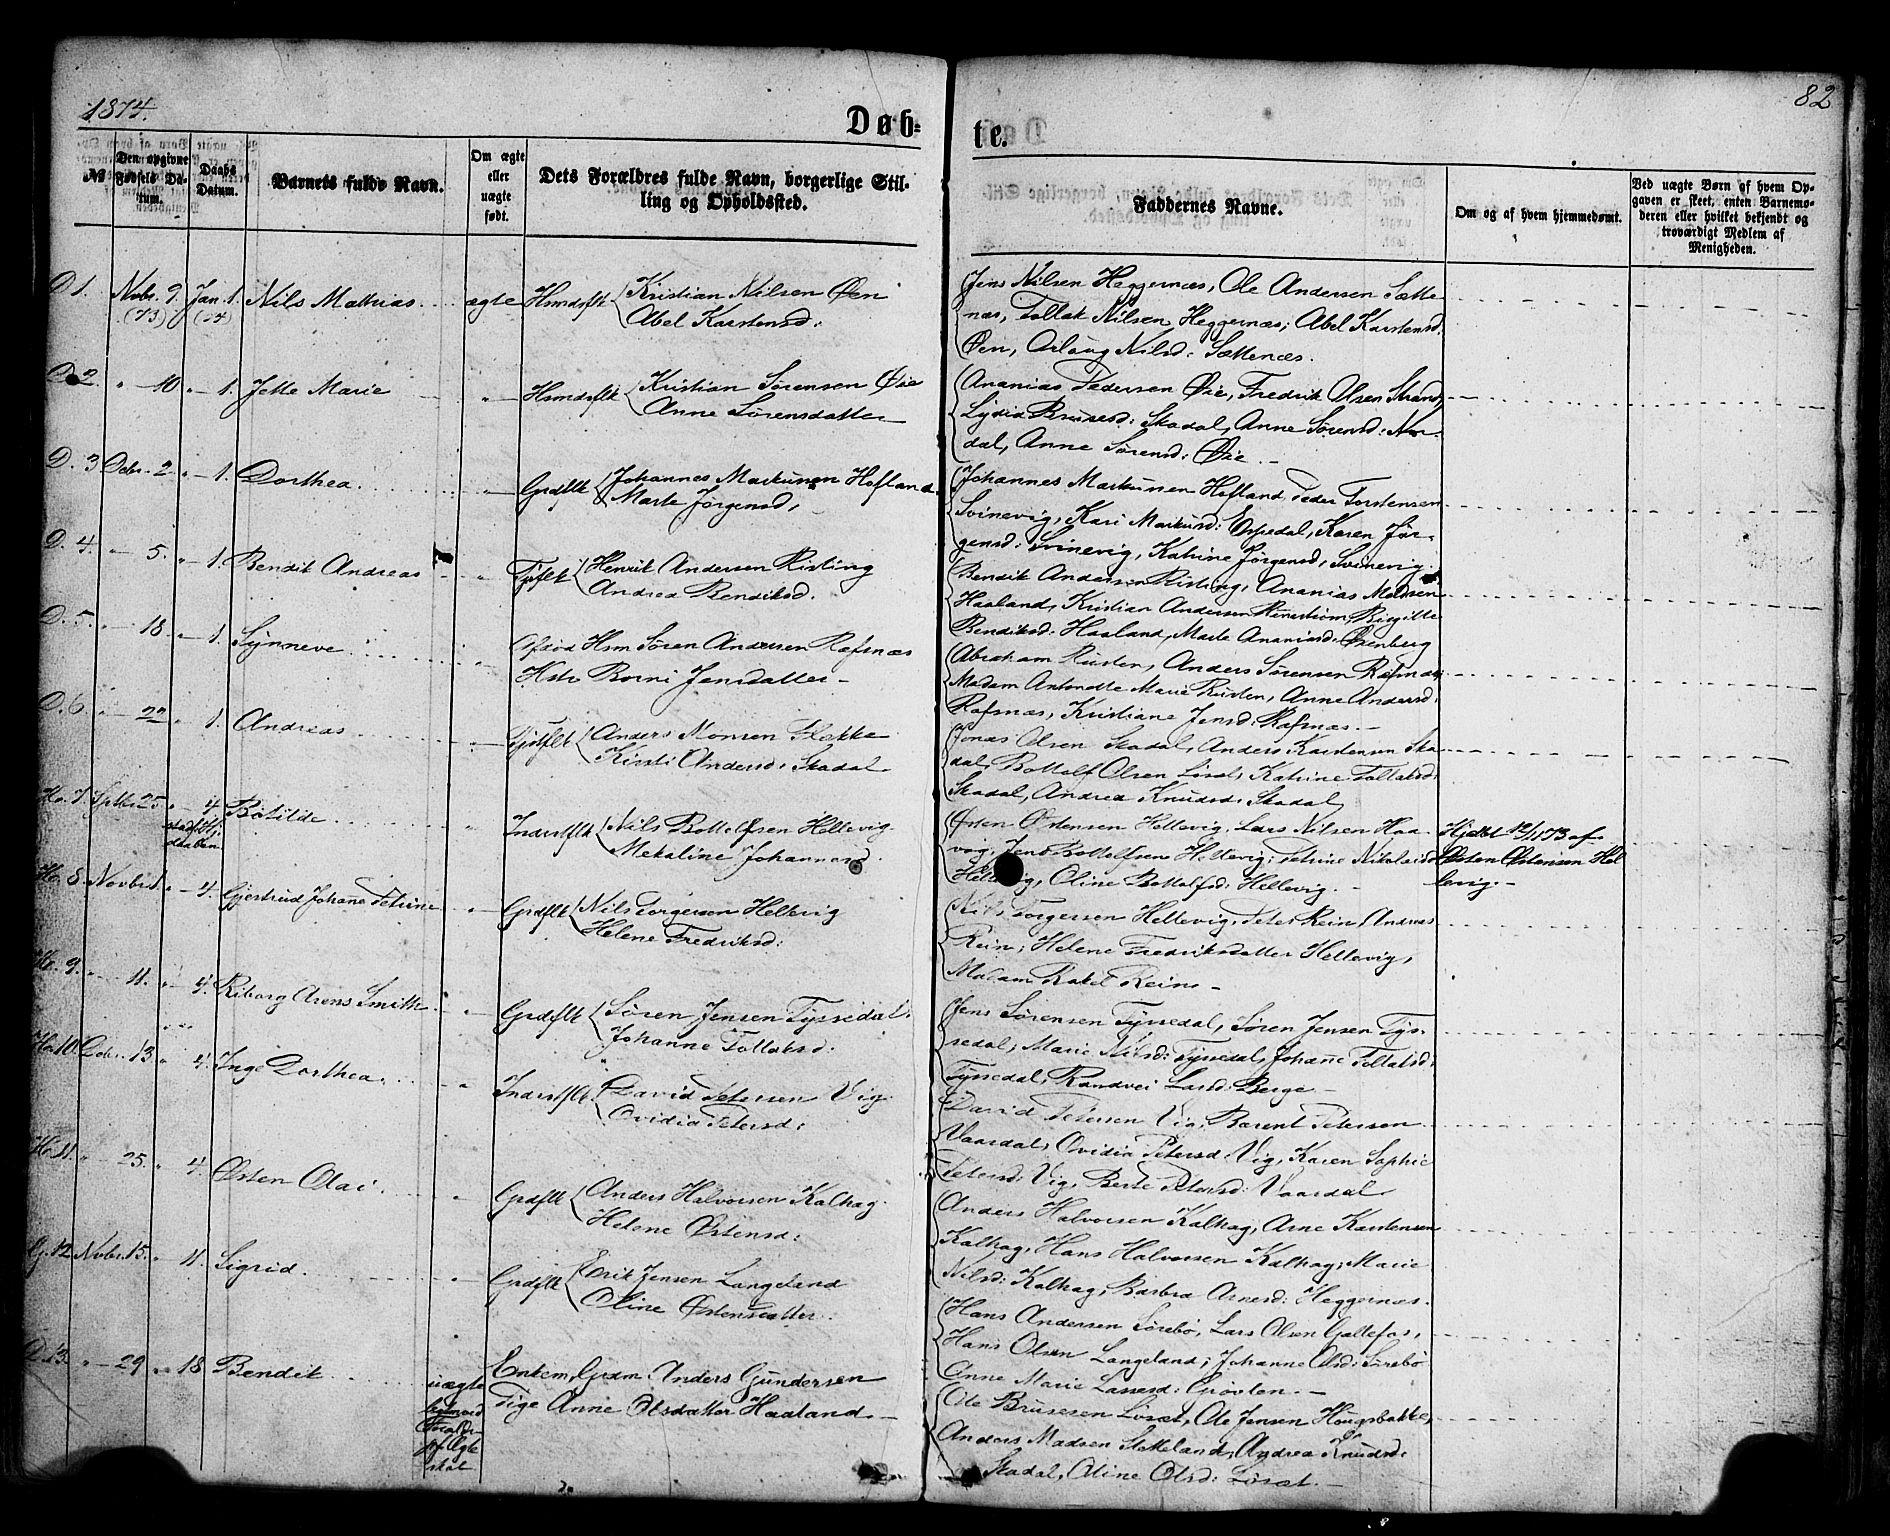 1874.
82
Døb-
te.
№
Den opgivne Fødsels Datum.
Daabs Datum.
Barnets fulde Navn.
Om ægte eller uægte født.
Dets Forældres fulde Navn, borgerlige Stilling og Opholdsted.
Faddernes Navne.
Om og af hvem hjemmedøbt.
Ved uægte Børn af hvem Opgaven er skeet, enten Barnemoderen eller hvilket bekjendt og troværdigt Medlem af Menigheden.
D 1. Novbr. 9. (73) Jan. 1. (74) Nils Mathias ægte Hsmdsflk Kristian Nilsen Øen
Abel Karstensd:
Jens Nilsen Heggernæs, Ole Andersen Sætte-
næs, Tollak Nilsen Heggernæs; Abel Karstensd.
Øen, Arlaug Nilsd: Sættenæs.
D 2. " 10 " 1. Jette Marie " Hsmdsflk Kristian Sørensen Øie
Anne Sørensdatter
Ananias Pedersen Øie, Fredrik Olsen Strand,
Lydia Brusesd: Skadal, Anne Sørensd: Nor-
dal, Anne Sørensd: Øie.
D. 3 Debr. 2 " 1. Dorthea " Grdflk Johannes Markussen Hofland
Marte Jørgensd,
Johannes Markussen Hofland, Peder Torstensen
Svinevig, Kari Markusd: Espedal, Karen Jør-
gensd: Svinevig, Katrine Jørgensd, Svinevig.
D. 4. " 5. " 1. Bendik Andreas " Tjflk Henrik Andersen Risting
Andrea Bendiksd.
Bendik Andersen Risting, Ananias Madsen
Haaland, Kristian Andersen Runestrøm, Birgitte
Bendiksd: Haaland, Marte Ananiasd: Ørenberg
D. 5. " 18. " 1. Synneve " Hsm Søren Andersen Rafsnæs
Hstr Borni Jensdatter
Abraham Rusten, Anders Sørensen Rafsnæs
Madam Antonette Marie Rusten, Anne Andersd:
Rafsnæs, Kristiane Jensd: Rafsnæs.
D. 6. " 22 " 1. Andreas " Tjstflk Anders Monsen Flekke
Kirsti Andersd: Skadal
Jonas Olsen Skadal, Anders Karstensen Ska-
dal, Bottolf Olsen Løset, Katrine Tollaksd:
Skadal, Andrea Knudsd: Skadal,
He. 7. Septb. 25 " 4 Botilde " Inderstflk Nils Bottolfsen Hellevig
Mekaline Johannesd
Østen Østensen Hellevig, Lars Nilsen Haa-
vig, Jens Bottolfsen Hellevig; Petrine Nikolaisd
Hellevig, Oline Bottolfsd: Hellevig.
Hjdbt 12/11 73 af
Østen Østensen Hel
levig.
He. 8. Novbr. 1. " 4. Gjertrud Johane Petrine " Grdflk Nils Torgersen Hellevig
Helene Fredriksd:
Nils Torgersen Hellevig, Peter Rein, Andreas
Rein; Helene Fredriksdatter Hellevig,
Madam Rakel Rein
He. 9. " 11. " 4. Riborg Arens Smith " Grdflk Søren Jensen Tyssedal
Johanne Tollaksd:
Jens Sørensen Tyssedal, Søren Jensen Tys-
sedal; Marie Nilsd: Tyssedal, Johanne Tollaksd:
Tyssedal, Randvei Larsd: Berge
He 10. Debr. 13. " 4. Inge Dorthea " Inderstflk David Petersen Vig
Ovidia Petersd:
David Petersen Vig, Barent Petersen
Vaardal, Ovidia Petersd Vig, Karen Sophie
Petersd: Vig, Berte Petersd: Vaardal
He 11. " 25. " 4. Østen Olai " Grdflk Anders Halvorsen Kalhag
Helene Østensd:
Anders Halvorsen Kalhag, Arne Karstensen
Kalhag, Hans Halvorsen Kalhag; Marie
Nilsd: Kalhag, Barbra Arnesd: Heggernæs.
G. 12. Novbr. 15. " 11. Sigrid. " Grdflk Erik Jensen Langeland
Oline Østensdatter.
Hans Andersen Sørebø, Lars Olsen Gallefos,
Hans Olsen Langeland; Johanne Olsd: Sørebø
Anne Marie Lassesd: Grøvlen.
D. 13. " 29 " 18 Bendik uægte Enkem, Grdm Anders Gundersen
Pige Anne Olsdatter Haaland.
Ole Brusesen Løset, Ole Jensen Hougsbakke,
Anders Madsen Støtteland, Andrea Knudsd:
Skadal, Oline Olsd: Løset.